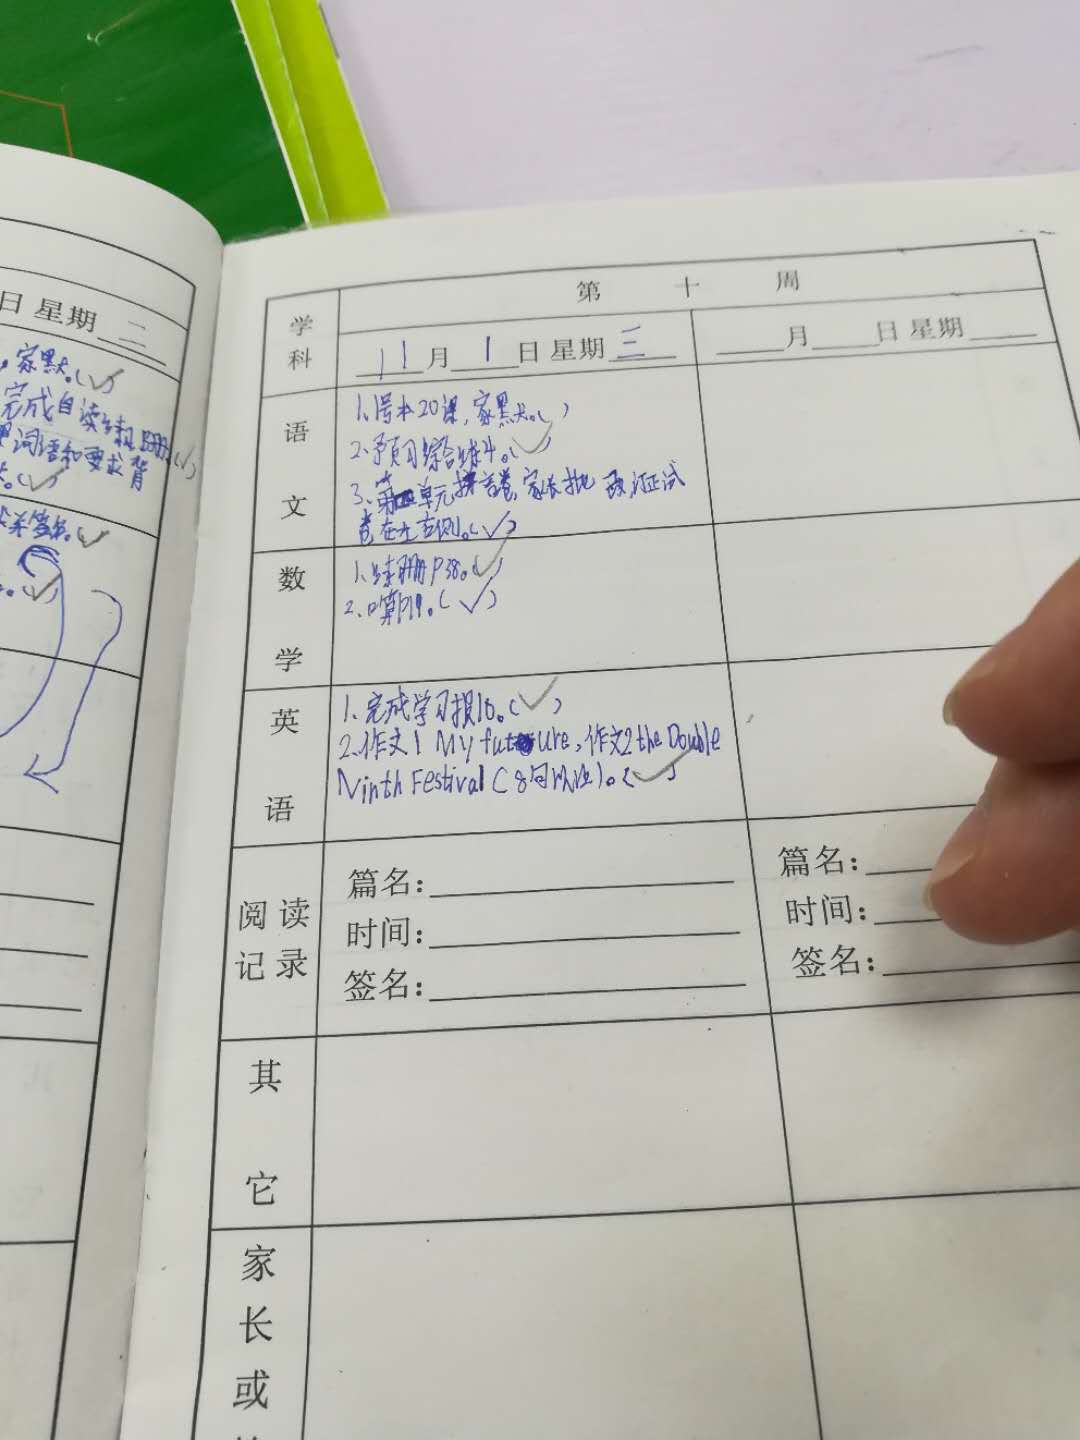 日 星期 二
家默。(✓)
完成自读练习册(✓)
词语和要求背
(✓)
第 十 周
学科
11月1日 星期三
月 日 星期
语文
1、号本20课,家默。( )
2、预习综合练4。(✓)
3、第四单元拼音卷,家长批改,订正试
卷在左右侧。(✓)
数学
1、练册P38。(✓)
2、口算P19。(✓)
英语
1、完成学习损16。(✓)
2、作文1 My future,作文2 the Double
Ninth Festival(8句以上)。(✓)
阅读记录
篇名:
时间:
签名:
篇名:
时间:
签名:
其它
家长或